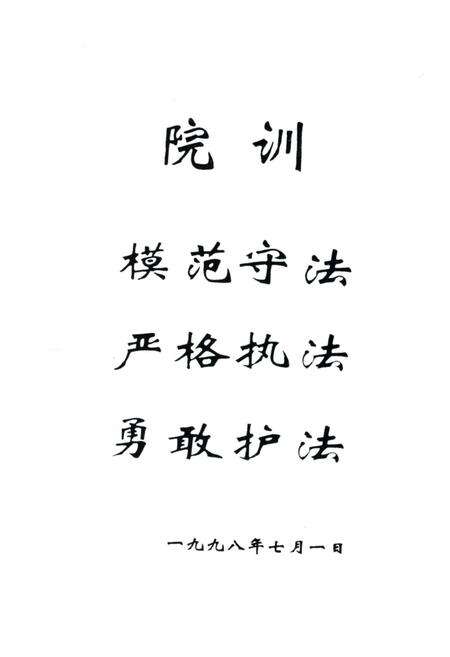 院训
模范守法
严格执法
勇敢护法
一九九八年七月一日